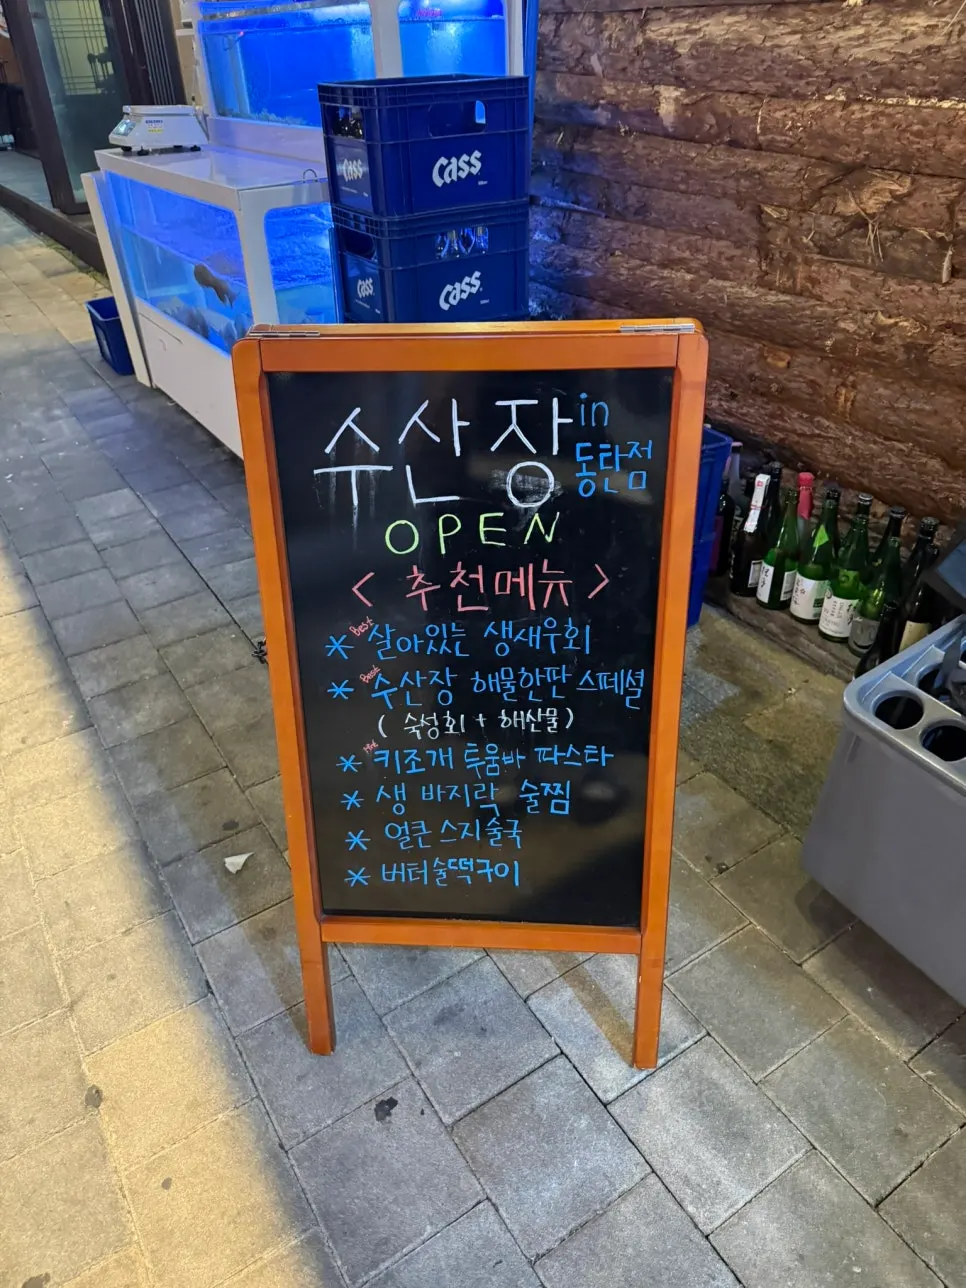 Cass
Cass
Cass
Cass
수산장 in
동탄점
OPEN
< 추천메뉴 >
* Best 살아있는 생새우회
* Best 수산장 해물한판 스페셜
( 숙성회 + 해산물 )
* Hit 키조개 투움바 파스타
* 생 바지락 술찜
* 얼큰 스지술국
* 버터술떡구이